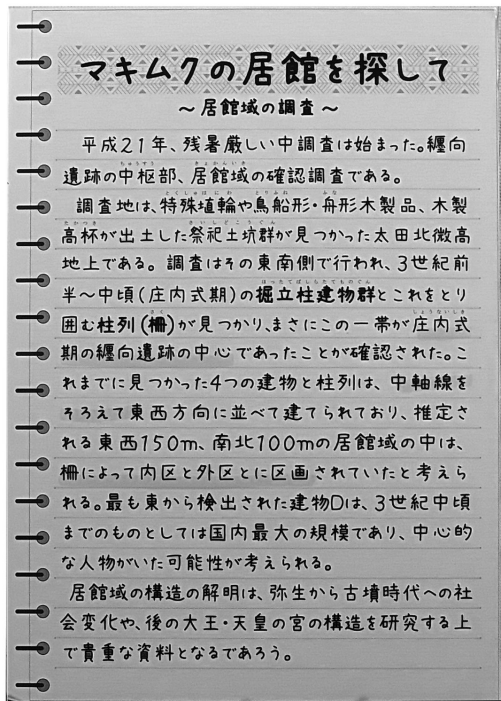 マキムクの居館を探して
～居館域の調査～
平成21年、残暑厳しい中調査は始まった。纒向
遺跡の中枢部、居館域の確認調査である。
調査地は、特殊埴輪や鳥船形・舟形木製品、木製
高杯が出土した祭祀土坑群が見つかった太田北微高
地上である。調査はその東南側で行われ、3世紀前
半～中頃(庄内式期)の掘立柱建物群とこれをとり
囲む柱列(柵)が見つかり、まさにこの一帯が庄内式
期の纒向遺跡の中心であったことが確認された。こ
れまでに見つかった4つの建物と柱列は、中軸線を
そろえて東西方向に並べて建てられており、推定さ
れる東西150m、南北100mの居館域の中は、
柵によって内区と外区とに区画されていたと考えら
れる。最も東から検出された建物Dは、3世紀中頃
までのものとしては国内最大の規模であり、中心的
な人物がいた可能性が考えられる。
居館域の構造の解明は、弥生から古墳時代への社
会変化や、後の大王・天皇の宮の構造を研究する上
で貴重な資料となるであろう。